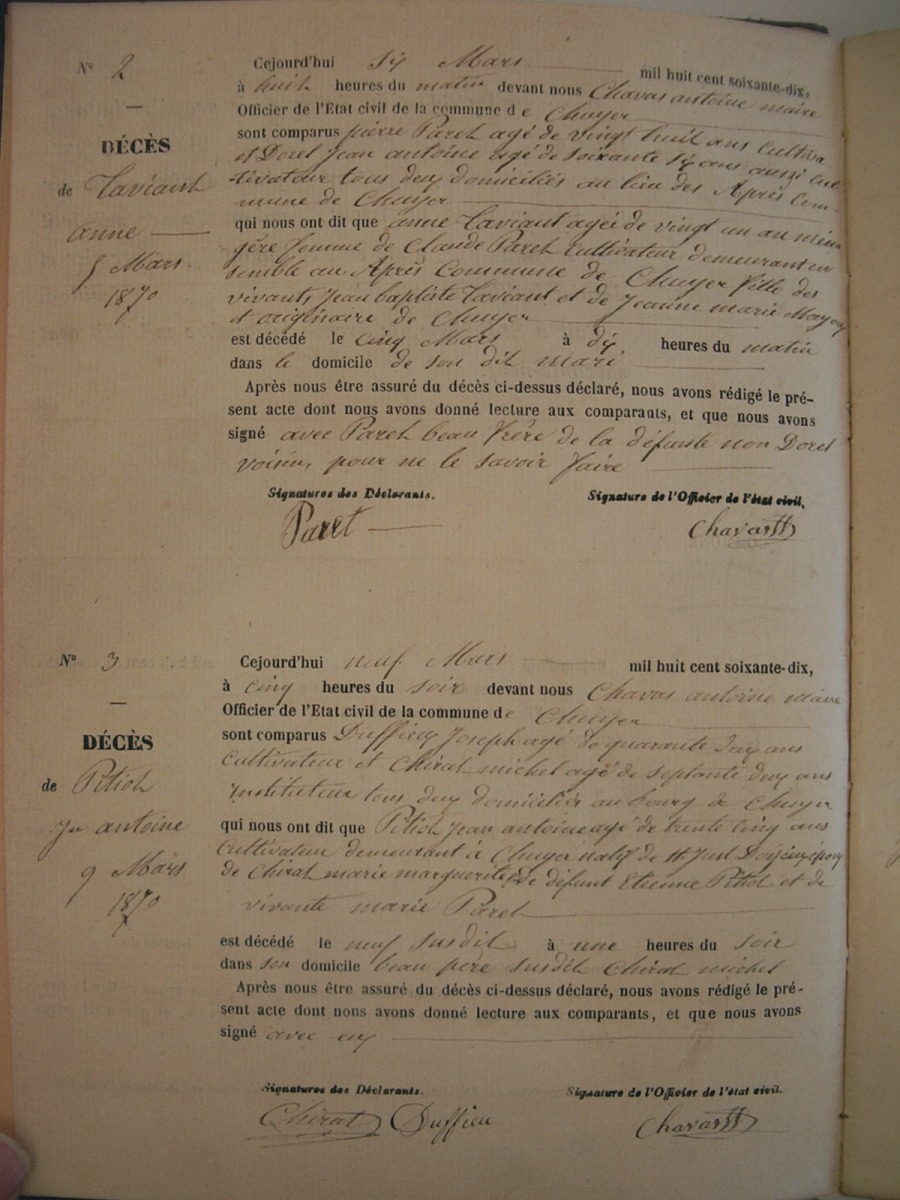 N° 2
DÉCÈS
de Taviant
anne
5 Mars
1870
Cejourd'hui six Mars mil huit cent soixante-dix,
à huit heures du matin devant nous Chavas antoine maire
Officier de l'Etat civil de la commune de Chuyer
sont comparus pierre Paret agé de vingt huit ans cultiva
et Dorel Jean antoine agé de soixante six ans aussi cul
tivateur tous deux domiciliés au lieu des Aprés Com-
mune de Chuyer
qui nous ont dit que anne Taviant agée de vingt un an ména
gère femme de Claude Paret Cultivateur demeurant en
semble au Aprés Commune de Chuyer fille des
vivants Jean baptiste Taviant et de Jeanne marie
et originaire de Chuyer
est décédé le cinq Mars à dix heures du matin
dans le domicile de son dit mari
Après nous être assuré du décès ci-dessus déclaré, nous avons rédigé le pré-
sent acte dont nous avons donné lecture aux comparants, et que nous avons
signé avec Paret beau frère de la défunte non Dorel
voisin, pour ne le savoir faire
Signatures des Déclarants. Signature de l'Officier de l'état civil,
Paret Chavas
N° 3
DÉCÈS
de Pitiot
Jn antoine
9 Mars
1870
Cejourd'hui neuf Mars mil huit cent soixante-dix,
à cinq heures du soir devant nous Chavas antoine maire
Officier de l'Etat civil de la commune de Chuyer
sont comparus Duffieu Joseph agé de quarante deux ans
cultivateur et Chirat michel agé de septante deux ans
instituteur tous deux domiciliés au bourg de Chuyer
qui nous ont dit que Pitiot Jean antoine agé de trente cinq ans
Cultivateur demeurant à Chuyer natif de St Just Doizieu époux
de Chirat marie marguerite de défunt Etienne Pitiot et de
vivante marie Paret
est décédé le neuf susdit à une heures du soir
dans son domicile beau père susdit Chirat michel
Après nous être assuré du décès ci-dessus déclaré, nous avons rédigé le pré-
sent acte dont nous avons donné lecture aux comparants, et que nous avons
signé avec eux
Signatures des Déclarants. Signature de l'Officier de l'état civil.
Chirat Duffieu Chavas